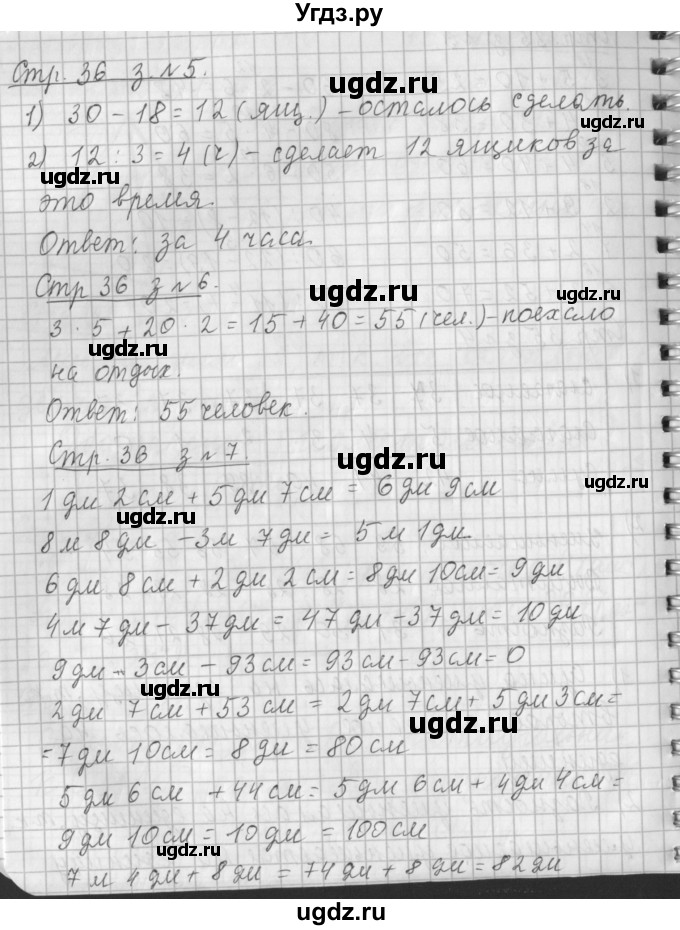 Угдз.ру
Стр. 36 з. №5.
ugdz.ru
1) 30 - 18 = 12 (ящ.) - осталось сделать.
ugdz.ru
2) 12 : 3 = 4 (ч) - сделает 12 ящиков за
ugdz.ru
это время.
Ответ: за 4 часа.
Стр 36 з №6.
ugdz.ru
ugdz.ru
3 · 5 + 20 · 2 = 15 + 40 = 55 (чел.) - поехало
ugdz.ru
на отдых.
Ответ: 55 человек.
Стр. 36 з №7.
ugdz.ru
1 дм 2 см + 5 дм 7 см = 6 дм 9 см
ugdz.ru
ugdz.ru
8 м 8 дм - 3 м 7 дм = 5 м 1 дм
6 дм 8 см + 2 дм 2 см = 8 дм 10 см = 9 дм
4 м 7 дм - 37 дм = 47 дм - 37 дм = 10 дм
9 дм - 3 см - 93 см = 93 см - 93 см = 0
ugdz.ru
2 дм 7 см + 53 см = 2 дм 7 см + 5 дм 3 см =
ugdz.ru
= 7 дм 10 см = 8 дм = 80 см
5 дм 6 см + 44 см = 5 дм 6 см + 4 дм 4 см =
9 дм 10 см = 10 дм = 100 см
ugdz.ru
7 м 4 дм + 8 дм = 74 дм + 8 дм = 82 дм
ugdz.ru